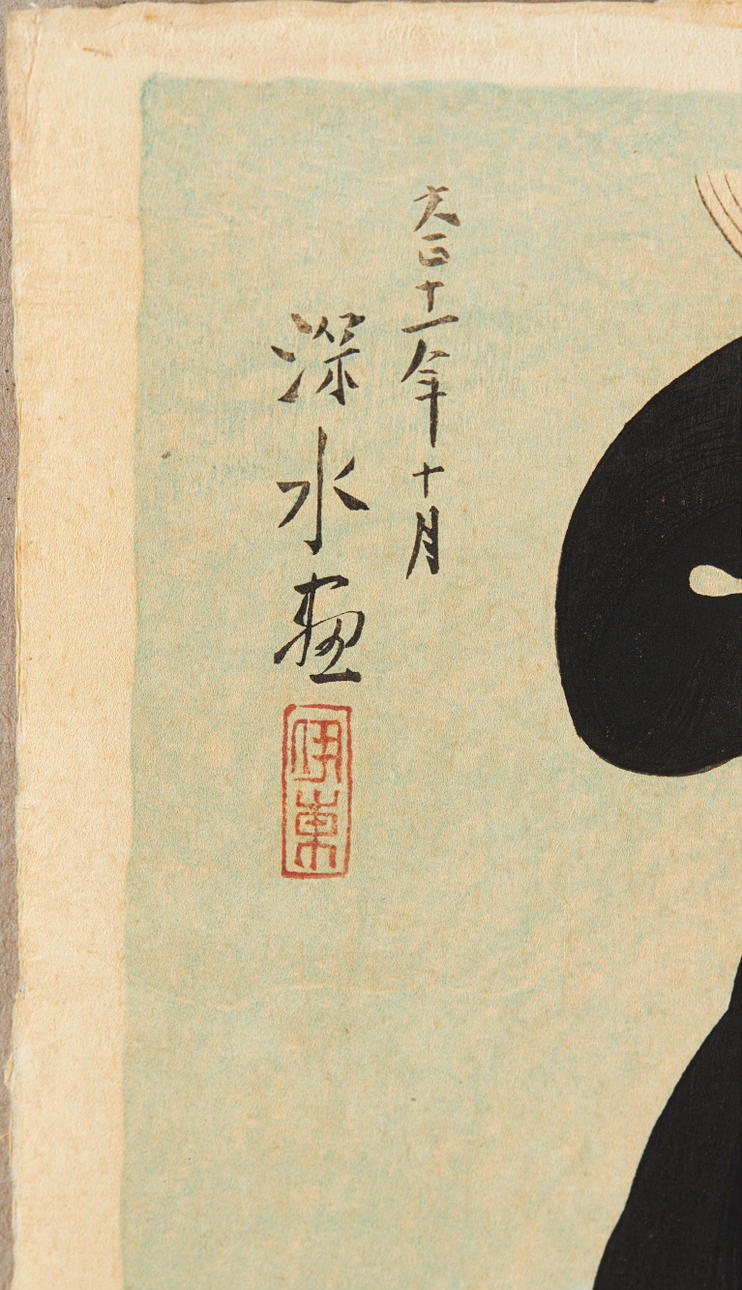 大正十一年十月
深水画
伊東